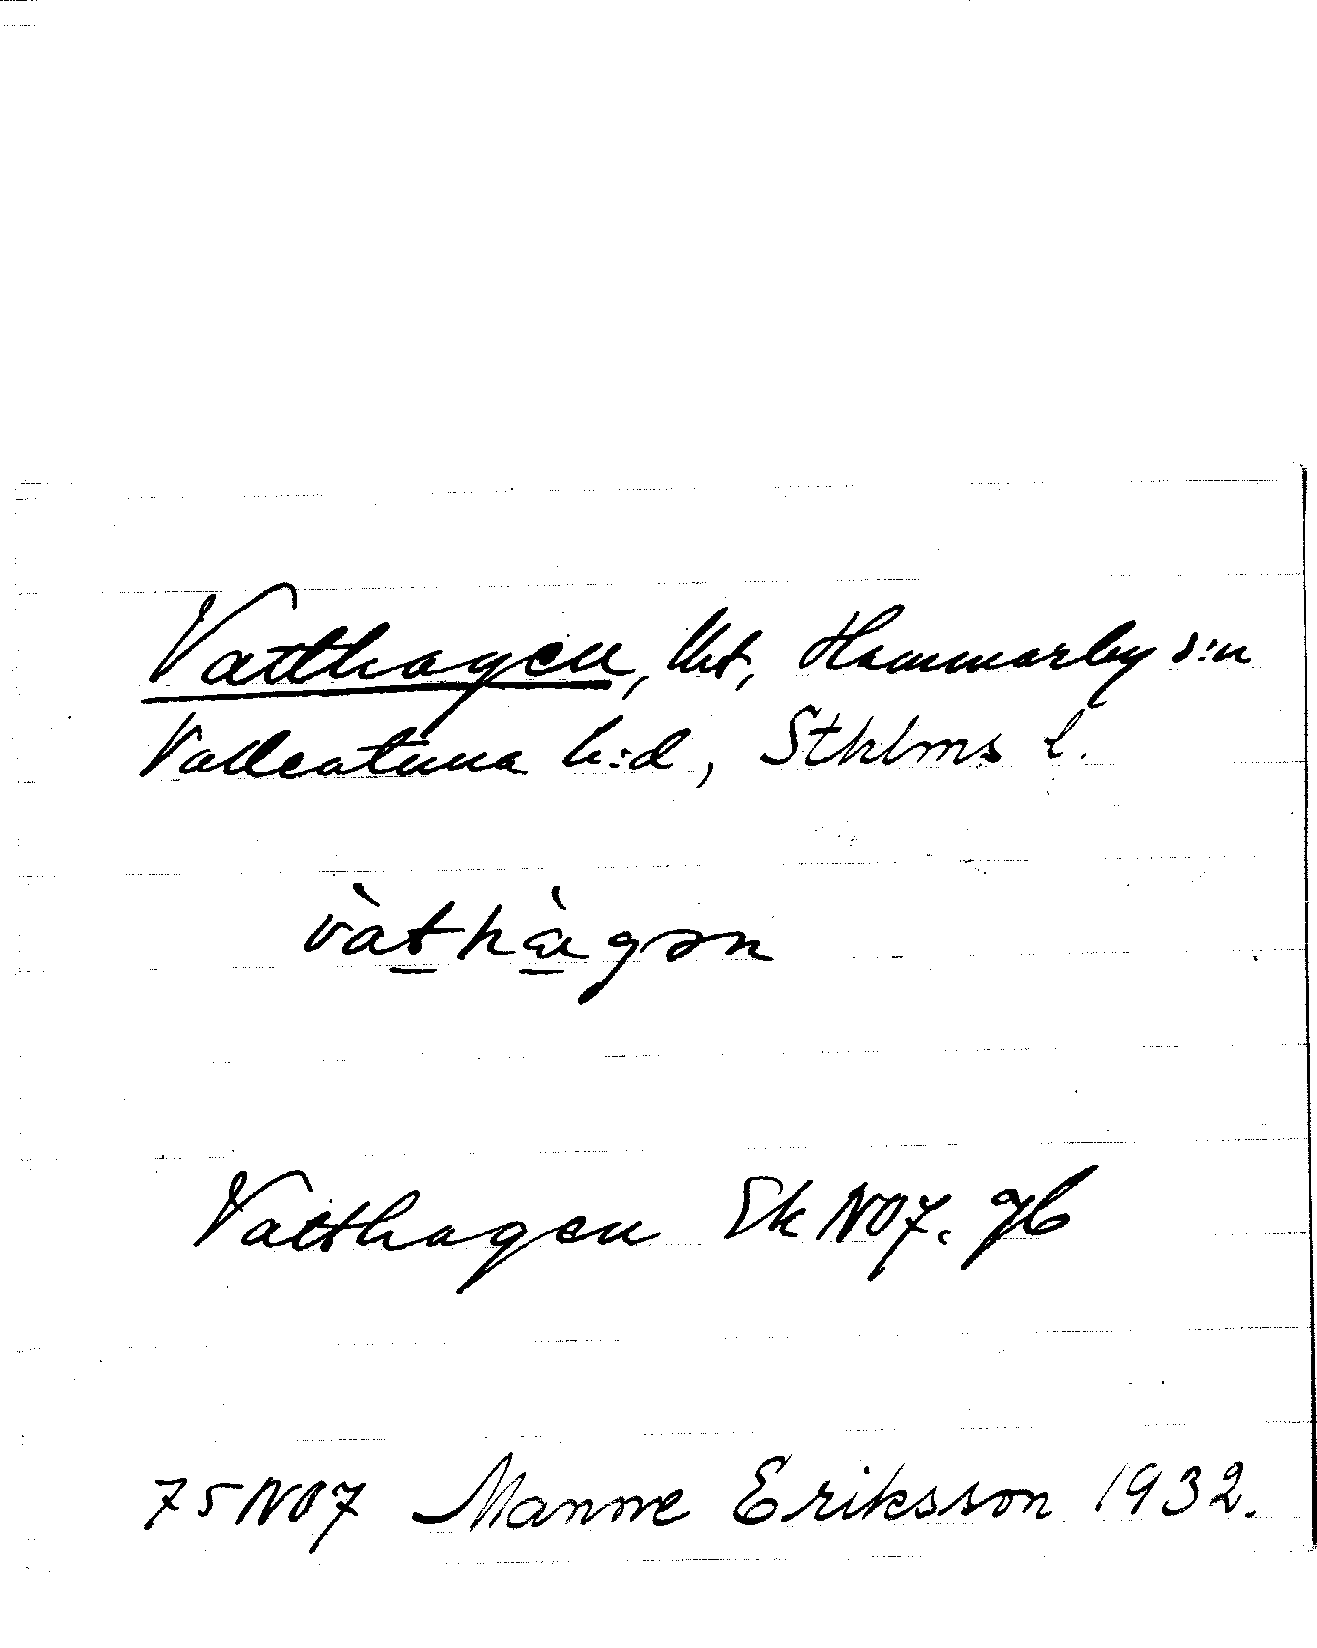 Vatthagen, Urt, Hammarby s:n
Vallentuna h:d, Sthlms l.
vàthàgən
Vatthagen Ek NO7. 96
75NO7 Manne Eriksson 1932.